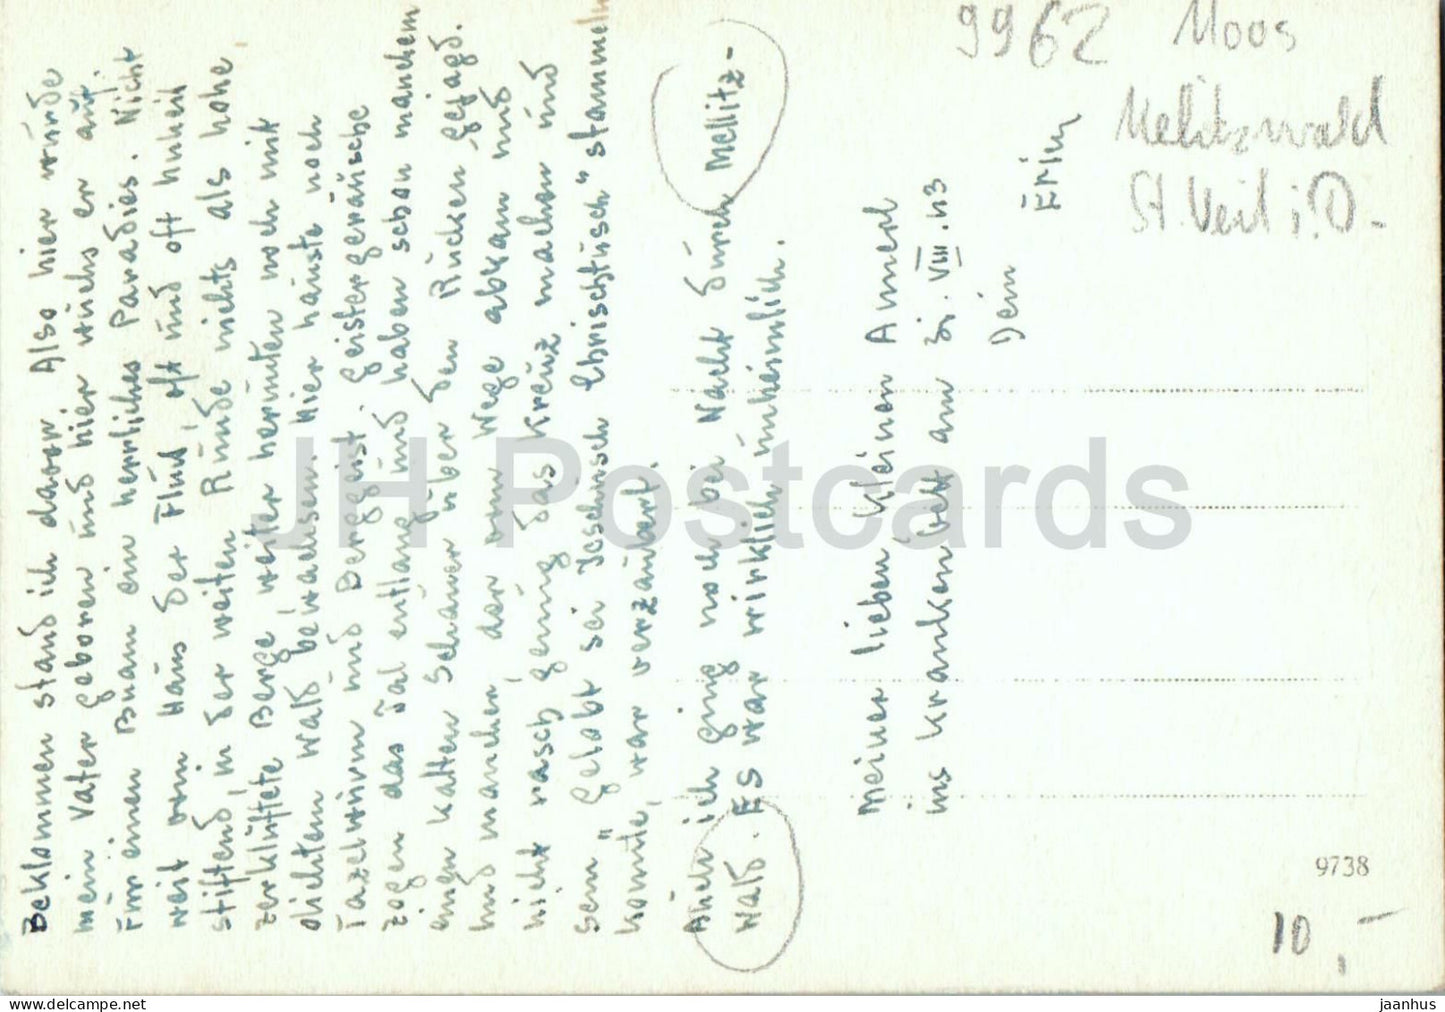 Beklommen stand ich davor. Also hier wurde
mein Vater geboren und hier wuchs er auf.
Für einen Buam ein herrliches Paradies. Nicht
weit vom Haus der Fluß, oft und oft Unheil
stiftend, in der weiten Runde nichts als hohe
zerklüftete Berge, weiter herunten noch mit
dichtem Wald bewachsen. Hier hauste noch
Tazelwurm und Berggeist. Geistergeräusche
zogen das Tal entlang und haben schon manchem
einen kalten Schauer über den Rücken gejagd.
Und mancher, der vom Wege abkam und
nicht rasch genug das Kreuz machen und
sein „Gelobt sei Jesusch Chrischtusch“ stammeln
konnte, war verzaubert.
Auch ich ging noch bei Nacht durch Mellitz-
wald. Es war wirklich unheimlich.
Meiner lieben kleinen Amerl
ins Krankenbett am 31. VIII. 43
Dein
9962 Moos
Melitzwald
St. Veit i. D.
9738
10,-
JH Postcards
www.delcampe.net
jaanhus